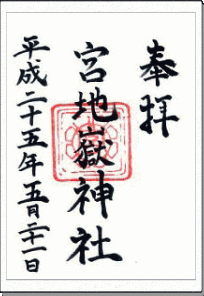 奉拝
宮地嶽神社
平成二十五年五月二十一日